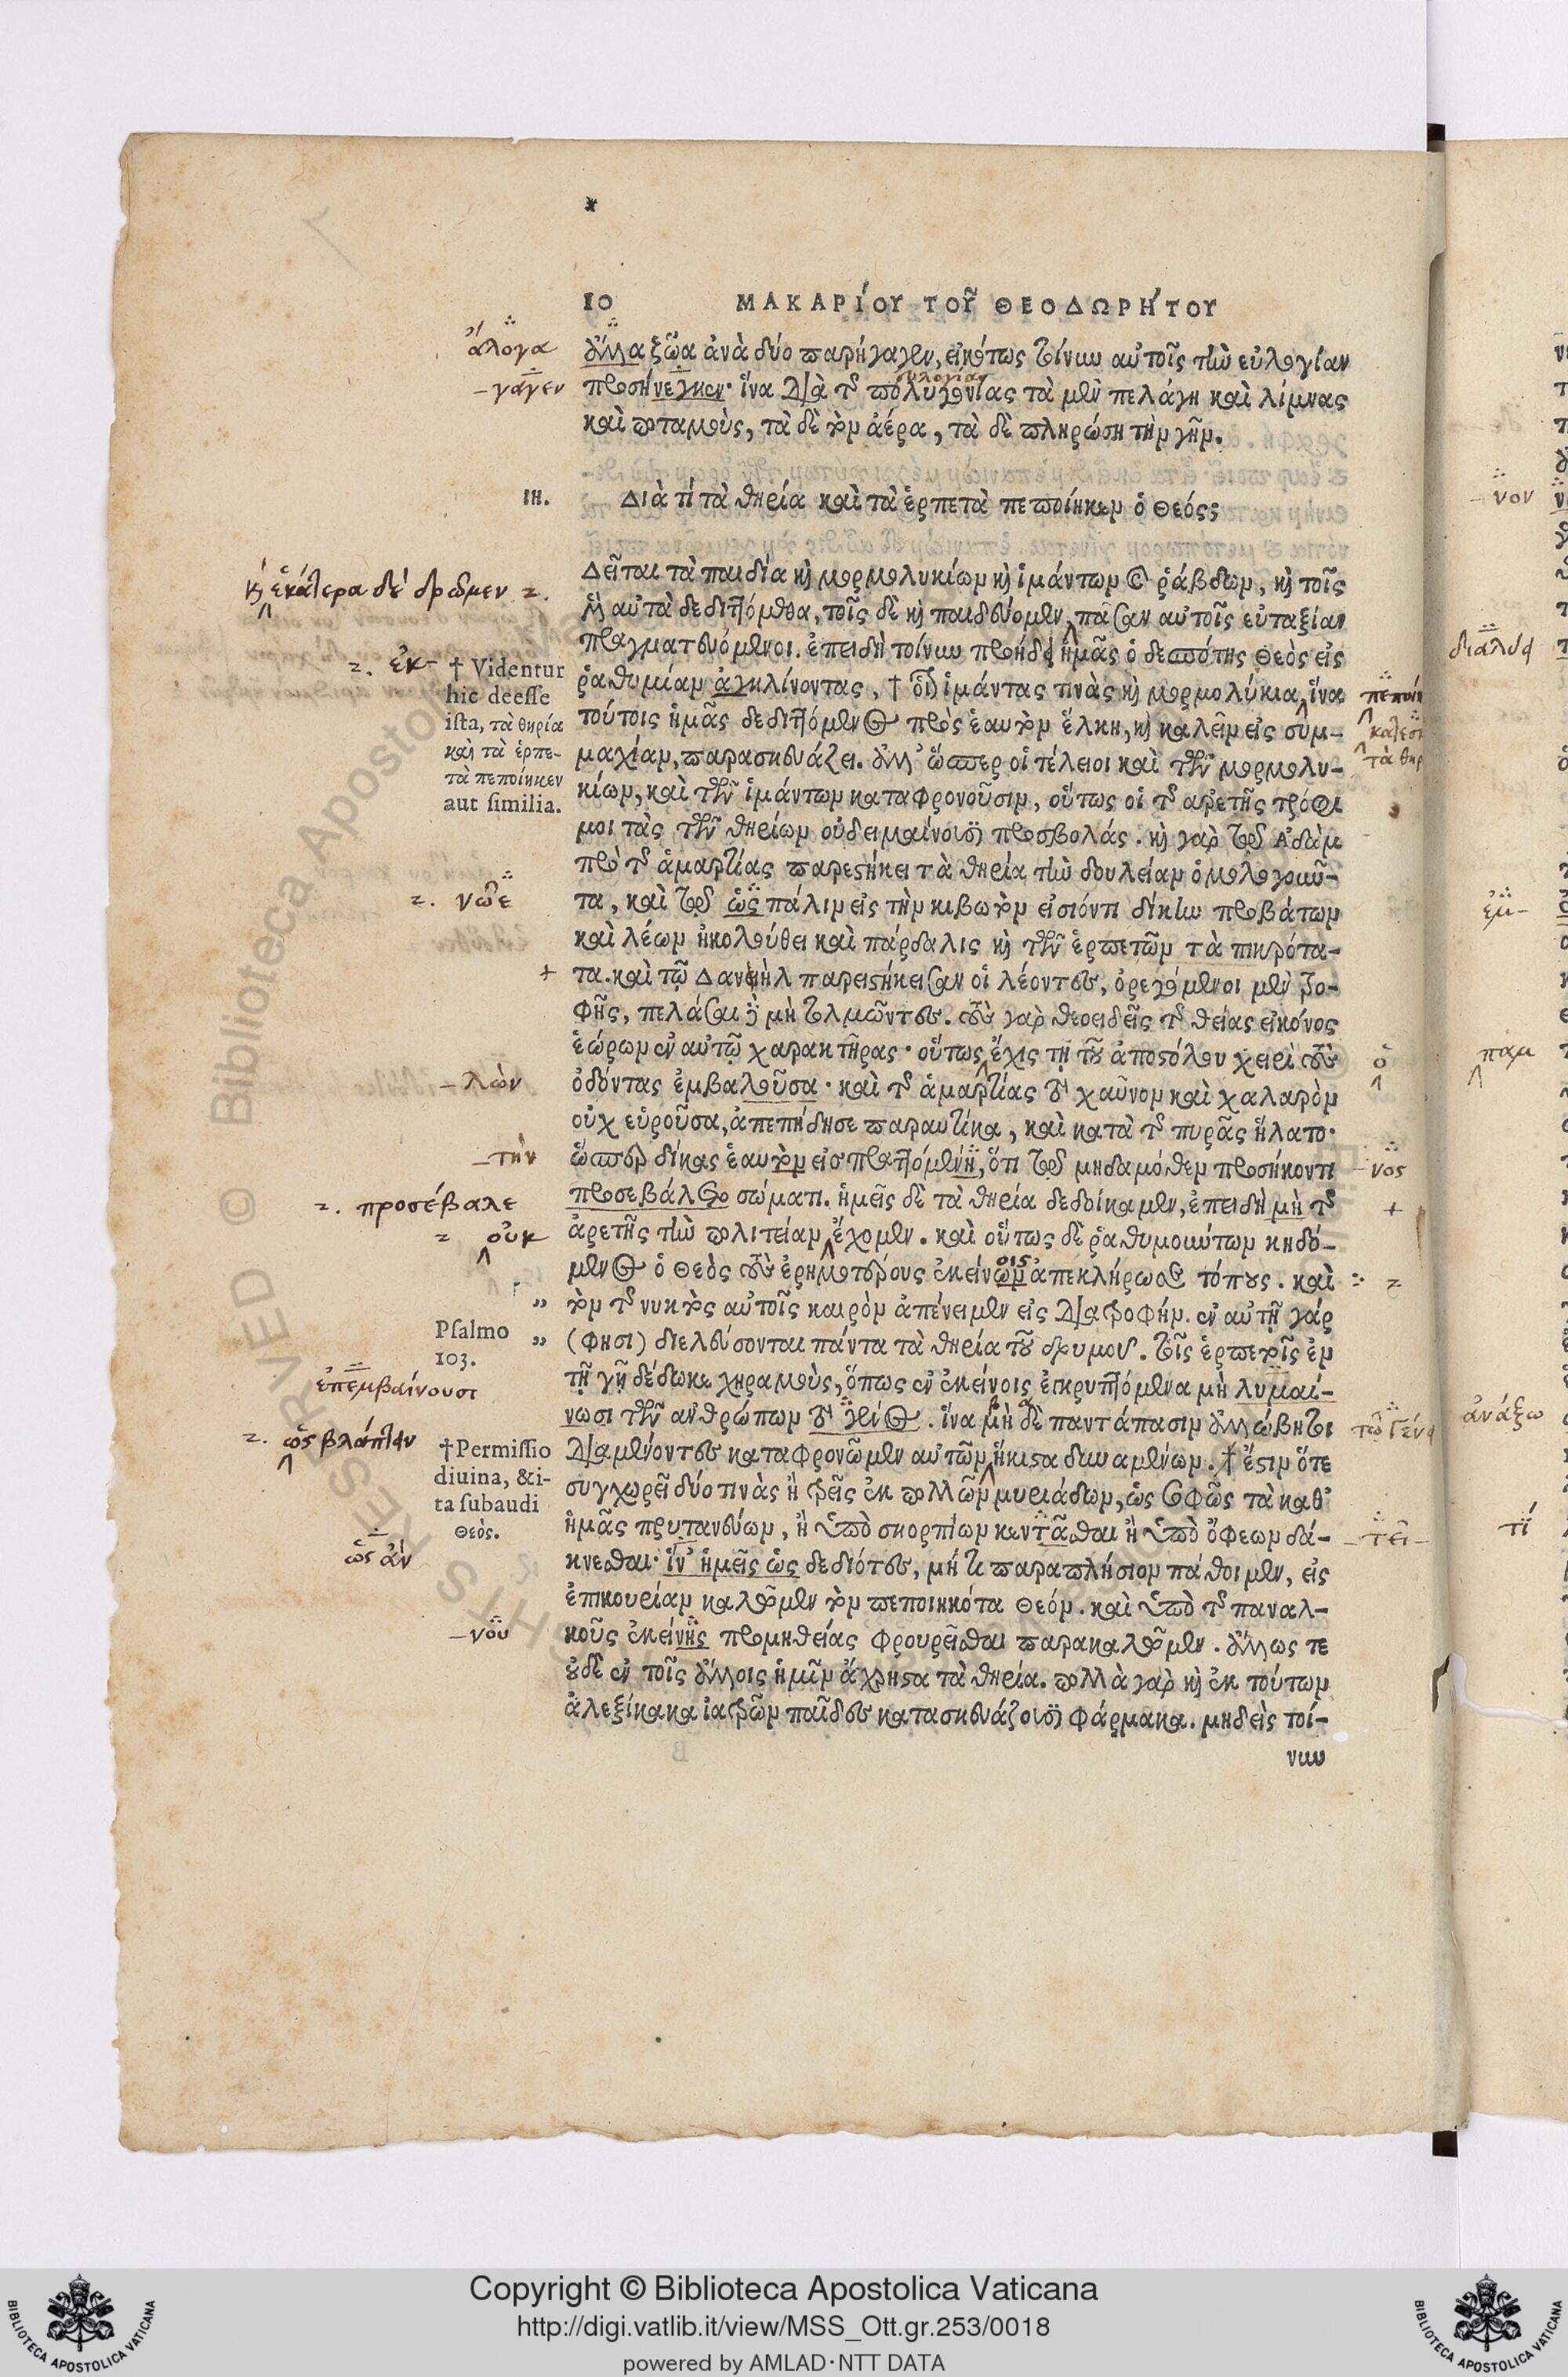 10 ΜΑΚΑΡΊΟΥ ΤΟΥ͂ ΘΕΟΔΩΡΉΤΟΥ
ἄλογα
ἄλλα ζῶα ἀνὰ δύο παρήγαγεν, εἰκότως τοίνυν αὐτοῖς τὴν εὐλογίαν
-γαγεν
προσήνεγκεν· ἵνα διὰ τῆς πολυγονίας τὰ μὲν πελάγη καὶ λίμνας
καὶ ποταμοὺς, τὰ δὲ τὸν ἀέρα, τὰ δὲ πληρώση τὴν γῆν.
ΙΗ. Διὰ τί τὰ θηρία καὶ τὰ ἑρπετὰ πεποίηκεν ὁ Θεός;
Δεῖται τὰ παιδία καὶ μορμολυκίων καὶ ἱμάντων καὶ ῥάβδων, καὶ τοῖς
καὶ ἑκάτερα δὲ δρῶμεν
μὲν αὐτὰ δεδιττόμεθα, τοῖς δὲ καὶ παιδεύομεν, πᾶσαν αὐτοῖς εὐταξίαν
πραγματευόμενοι. ἐπειδὴ τοίνυν προήδει ἡμᾶς ὁ δεσπότης Θεὸς εἰς
ἐκ-
† Videntur
hic deesse
ista, τὰ θηρία
καὶ τὰ ἑρπε-
τὰ πεποίηκεν
aut similia.
ῥαθυμίαν ἀγκλίνοντας, † οἷον ἱμάντας τινὰς καὶ μορμολύκια, ἵνα
τούτοις ἡμᾶς δεδιττόμενος πρὸς ἑαυτὸν ἕλκη, καὶ καλεῖν εἰς συμ-
μαχίαν, παρασκευάζει. ἀλλ' ὥσπερ οἱ τέλειοι καὶ τῶν μορμολυ-
κίων, καὶ τῶν ἱμάντων καταφρονοῦσιν, οὕτως οἱ τῆς ἀρετῆς τρόφι
μοι τὰς τῶν θηρίων οὐ δειμαίνουσι προσβολάς. καὶ γὰρ τῷ Αδὰμ
πρὸ τῆς ἁμαρτίας παρεστήκει τὰ θηρία τὴν δουλείαν ὁμολογοῦν-
νῶε
τα, καὶ τῷ ὡς πάλιν εἰς τὴν κιβωτὸν εἰσιόντι δίκην προβάτων
καὶ λέων ἠκολούθει καὶ πάρδαλις καὶ τῶν ἑρπετῶν τὰ πικρότα-
+ τα. καὶ τῷ Δανιὴλ παρειστήκεισαν οἱ λέοντες, ὀρεγόμενοι μὲν τρο-
φῆς, πελάσαι δὲ μὴ τολμῶντες. τοὺς γὰρ θεοειδεῖς τῆς θείας εἰκόνος
ἑώρων ἐν αὐτῷ χαρακτῆρας· οὕτως ἔχις τῇ τοῦ ἀποστόλου χειρὶ τοὺς
ὁ
-λὼν
ὀδόντας ἐμβαλοῦσα· καὶ τῆς ἁμαρτίας τὸ χαῦνον καὶ χαλαρὸν
οὐχ εὑροῦσα, ἀπεπήδησε παραυτίκα, καὶ κατὰ τῆς πυρᾶς ἥλατο·
-τὴν
ὥσπερ δίκας ἑαυτὸν εἰσπραττόμενη, ὅτι τῷ μηδαμόθεν προσήκοντι
-νος
προσέβαλε
προσεβάλετο σώματι. ἡμεῖς δὲ τὰ θηρία δεδοίκαμεν, ἐπειδὴ μὴ τῆς
+
οὐκ
ἀρετῆς τὴν πολιτείαν ἔχομεν. καὶ οὕτως δὲ ῥαθυμούντων κηδό-
οις
μενος ὁ Θεὸς τοὺς ἐρημοτέρους ἐκείνων ἀπεκλήρωσε τόπους. καὶ
„ τὸν τῆς νυκτὸς αὐτοῖς καιρὸν ἀπένειμεν εἰς διατροφήν. ἐν αὐτῇ γάρ
Psalmo
103.
„ (φησι) διελεύσονται πάντα τὰ θηρία τοῦ δρυμοῦ. τοῖς ἑρπετοῖς ἐν
ἐπεμβαίνουσι
τῇ γῇ δέδωκε χηραμοὺς, ὅπως ἐν ἐκείνοις ἐγκρυπτόμενα μὴ λυμαί-
νωσι τῶν ἀνθρώπων τὸ γένος. ἵνα μὴ δὲ παντάπασιν ἀλώβητοι
ὡς βλάπτειν
†Permissio
diuina, & i-
ta subaudi
Θεὸς.
διαμένοντες καταφρονῶμεν αὐτῶν ἥκιστα δυναμένων. † ἔστιν ὅτε
συγχωρεῖ δύο τινὰς ἢ τρεῖς ἐκ πολλῶν μυριάδων, ὡς σαφῶς τὰ καθ'
ἡμᾶς πρυτανεύων, ἢ ὑπὸ σκορπίων κεντᾶσθαι ἢ ὑπὸ ὄφεων δά-
-τεῖ-
ὡς ἂν
κνεσθαι· ἵν' ἡμεῖς ὡς δεδιότες, μή τι παραπλήσιον πάθοιμεν, εἰς
ἐπικουρίαν καλῶμεν τὸν πεποιηκότα Θεόν. καὶ ὑπὸ τῆς παναλ-
-νου
κοῦς ἐκείνης προμηθείας φρουρεῖσθαι παρακαλῶμεν. ἄλλως τε
οὐδὲ ἐν τοῖς ἄλλοις ἡμῖν ἄχρηστα τὰ θηρία. πολλὰ γὰρ καὶ ἐκ τούτων
ἀλεξίκακα ἰατρῶν παῖδες κατασκευάζουσι φάρμακα. μηδεὶς τοί-
νυν
Copyright © Biblioteca Apostolica Vaticana
http://digi.vatlib.it/view/MSS_Ott.gr.253/0018
powered by AMLAD·NTT DATA
BIBLIOTECA APOSTOLICA VATICANA
BIBLIOTECA APOSTOLICA VATICANA